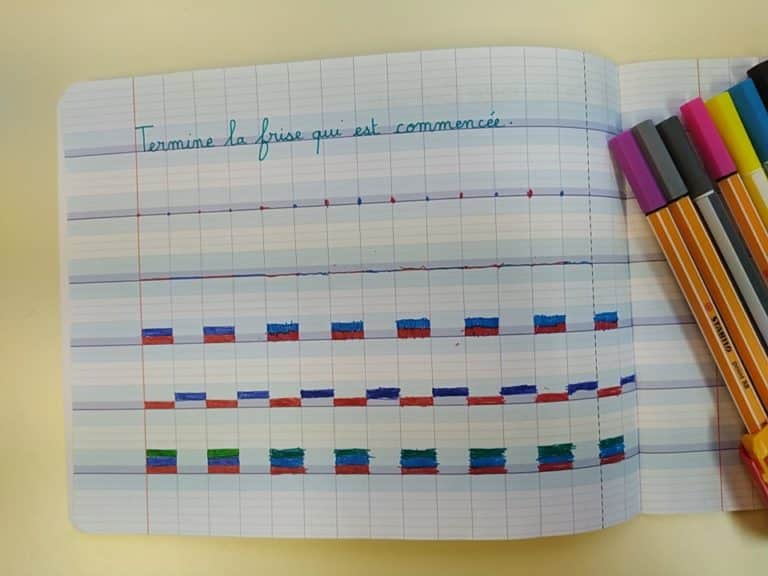 Termine la frise qui est commencée.
STABILO
point 88